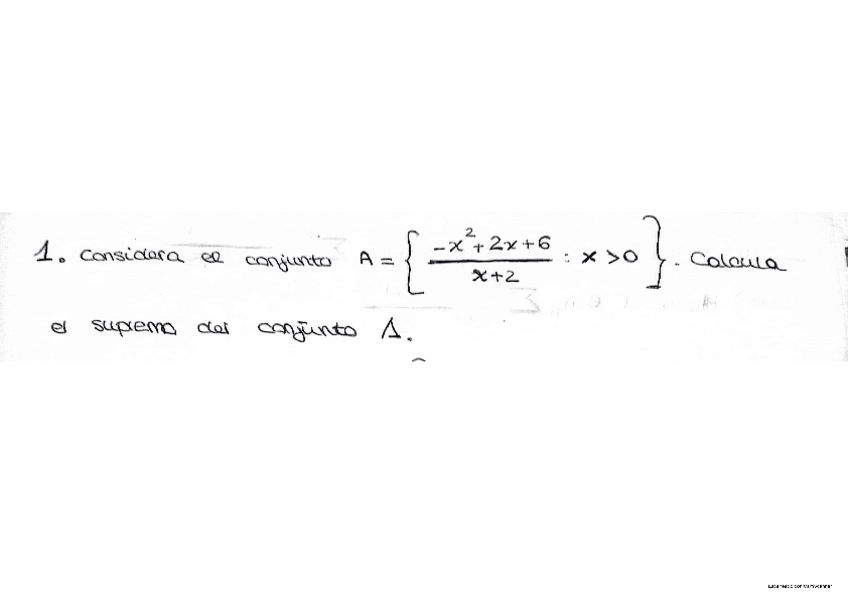 1. Considera el conjunto A = { (-x² + 2x + 6) / (x + 2) : x > 0 }. Calcula
el supremo del conjunto A.